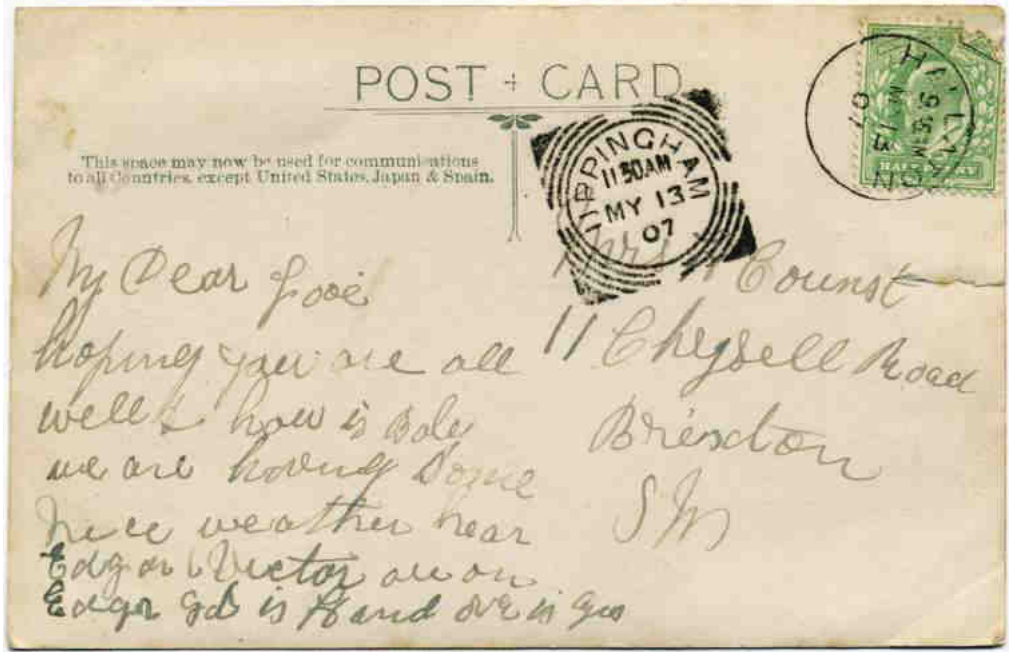 POST CARD
This space may now be used for communications
to all Countries, except United States, Japan & Spain.
UPPINGHAM
11.30AM
MY 13
07
HALLATON
9 15 AM
MY 13
07
My Dear
hoping you are all
well & how is
we are having some
nice weather hear
Edgar & Victor are on
Edgar is Hand over is
Counst
11 Cheysell Road
Brixton